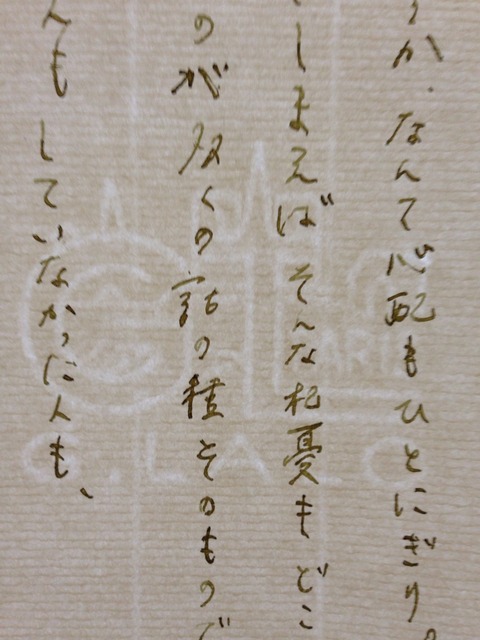 か、なんて心配もひとにぎり。
しまえば そんな杞憂も どこ
のが 多くの話の種そのもので
んも していなかった人も、
G.LALO
PARIS